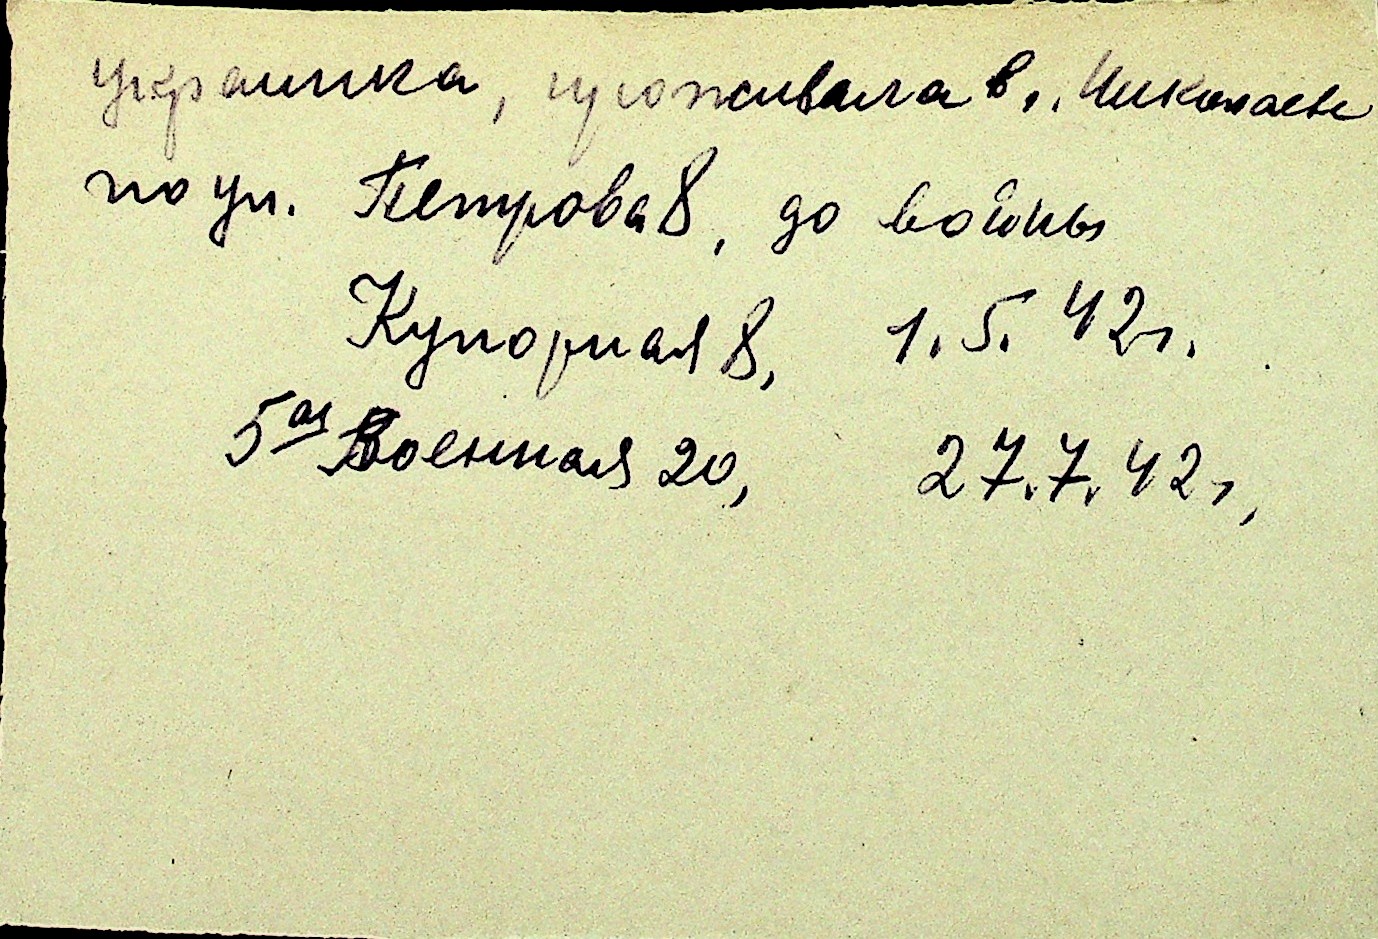 украинка, проживала в г. Николаеве
по ул. Петрова 8, до войны
Купорная 8, 1.5.42г.
5ая Военная 20, 27.7.42г,